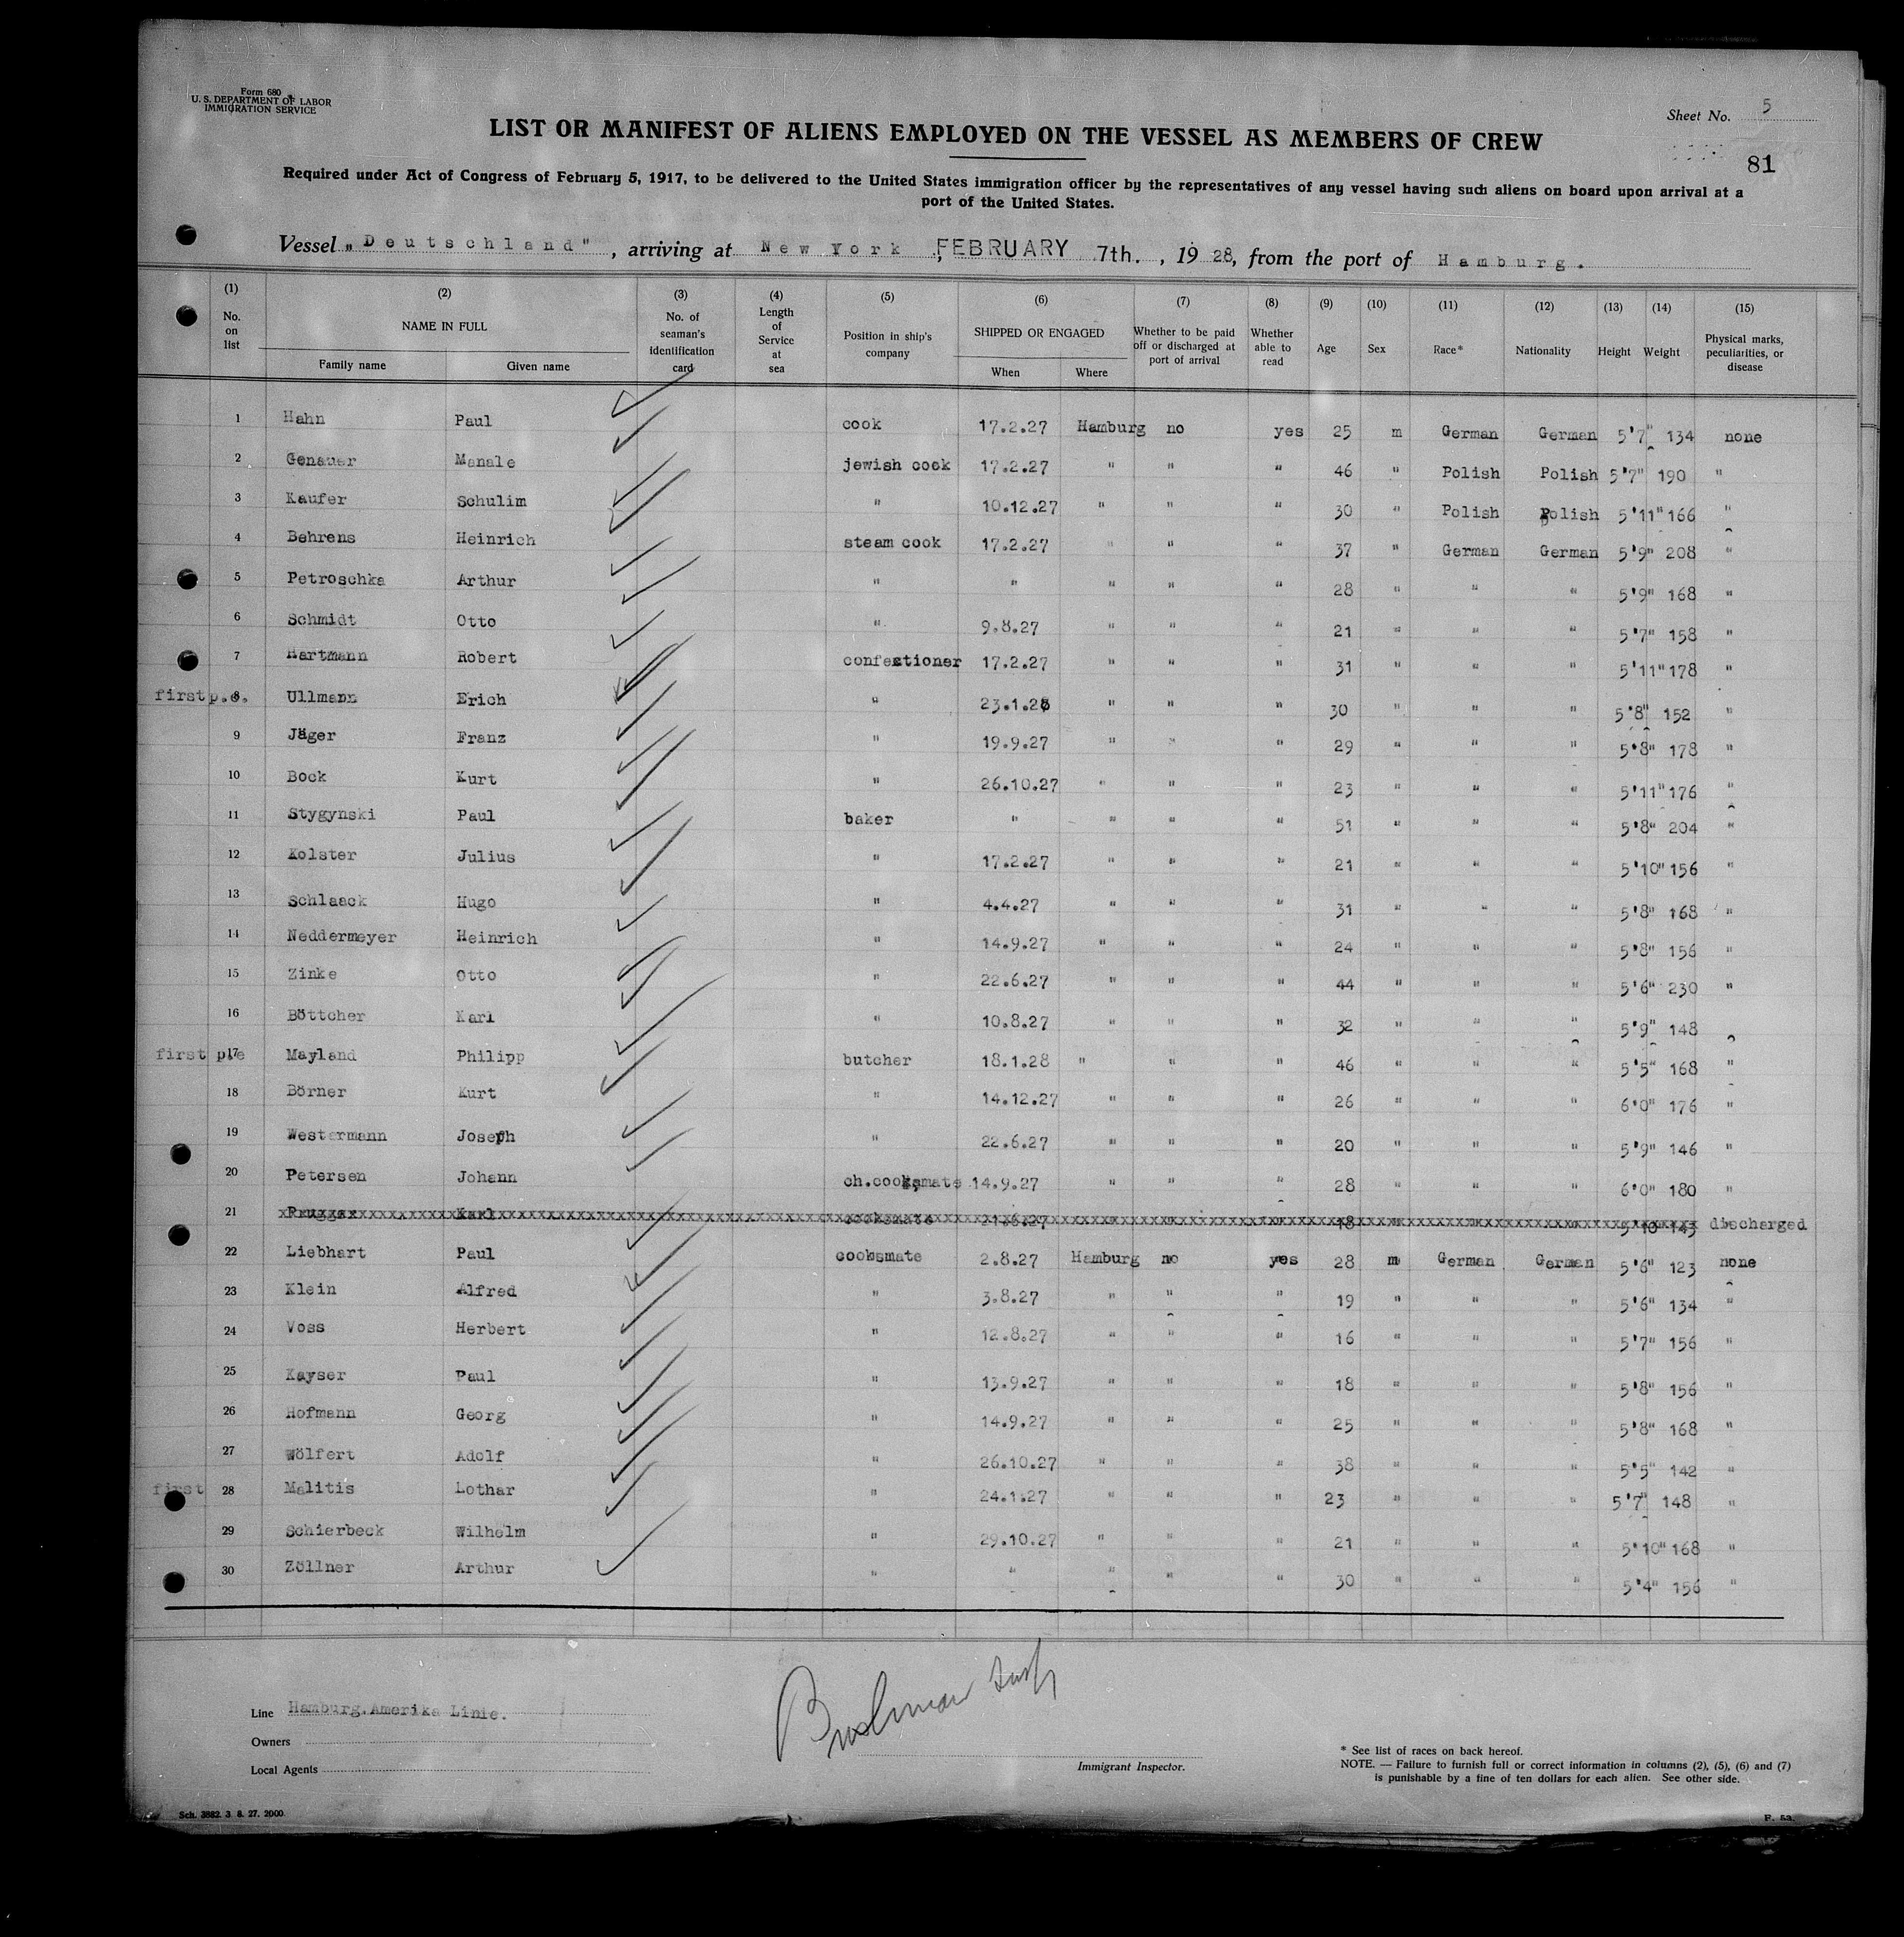 Form 680
U. S. DEPARTMENT OF LABOR
IMMIGRATION SERVICE
Sheet No. 5
LIST OR MANIFEST OF ALIENS EMPLOYED ON THE VESSEL AS MEMBERS OF CREW
81
Required under Act of Congress of February 5, 1917, to be delivered to the United States immigration officer by the representatives of any vessel having such aliens on board upon arrival at a
port of the United States.
Vessel „Deutschland", arriving at New York, FEBRUARY 7th., 1928, from the port of Hamburg.
(1) (2) (3) (4) (5) (6) (7) (8) (9) (10) (11) (12) (13) (14) (15)
No. on list NAME IN FULL Family name Given name No. of seaman's identification card Length of Service at sea Position in ship's company SHIPPED OR ENGAGED When Where Whether to be paid off or discharged at port of arrival Whether able to read Age Sex Race* Nationality Height Weight Physical marks, peculiarities, or disease
1 Hahn Paul cook 17.2.27 Hamburg no yes 25 m German German 5'7" 134 none
2 Genauer Manale jewish cook 17.2.27 " " " 46 " Polish Polish 5'7" 190 "
3 Kaufer Schulim " 10.12.27 " " " 30 " Polish Polish 5'11" 166 "
4 Behrens Heinrich steam cook 17.2.27 " " " 37 " German German 5'9" 208 "
5 Petroschka Arthur " " " " " 28 " " " 5'9" 168 "
6 Schmidt Otto " 9.8.27 " " " 21 " " " 5'7" 158 "
7 Hartmann Robert confectioner 17.2.27 " " " 31 " " " 5'11" 178 "
first p.e. 8 Ullmann Erich " 23.1.28 " " " 30 " " " 5'8" 152 "
9 Jäger Franz " 19.9.27 " " " 29 " " " 5'8" 178 "
10 Bock Kurt " 26.10.27 " " " 23 " " " 5'11" 176 "
11 Stygynski Paul baker " " " " 51 " " " 5'8" 204 "
12 Kolster Julius " 17.2.27 " " " 21 " " " 5'10" 156 "
13 Schlaack Hugo " 4.4.27 " " " 31 " " " 5'8" 168 "
14 Neddermeyer Heinrich " 14.9.27 " " " 24 " " " 5'8" 156 "
15 Zinke Otto " 22.6.27 " " " 44 " " " 5'6" 230 "
16 Böttcher Karl " 10.8.27 " " " 32 " " " 5'9" 148 "
first p.e 17 Mayland Philipp butcher 18.1.28 " " " 46 " " " 5'5" 168 "
18 Börner Kurt " 14.12.27 " " " 26 " " " 6'0" 176 "
19 Westermann Joseph " 22.6.27 " " " 20 " " " 5'9" 146 "
20 Petersen Johann ch.cooksmate 14.9.27 " " " 28 " " " 6'0" 180 "
21 Karl cooksmate " " " 18 " " " 5'10" 145 discharged
22 Liebhart Paul cooksmate 2.8.27 Hamburg no yes 28 m German German 5'6" 123 none
23 Klein Alfred " 3.8.27 " " " 19 " " " 5'6" 134 "
24 Voss Herbert " 12.8.27 " " " 16 " " " 5'7" 156 "
25 Kayser Paul " 13.9.27 " " " 18 " " " 5'8" 156 "
26 Hofmann Georg " 14.9.27 " " " 25 " " " 5'8" 168 "
27 Wölfert Adolf " 26.10.27 " " " 38 " " " 5'5" 142 "
first 28 Malitis Lothar " 24.1.27 " " " 23 " " " 5'7" 148 "
29 Schierbeck Wilhelm " 29.10.27 " " " 21 " " " 5'10" 168 "
30 Zöllner Arthur " " " " " 30 " " " 5'4" 156 "
Line Hamburg.Amerika Linie.
Owners
Local Agents
Immigrant Inspector.
* See list of races on back hereof.
NOTE. — Failure to furnish full or correct information in columns (2), (5), (6) and (7)
is punishable by a fine of ten dollars for each alien. See other side.
Sch. 3882. 3. 8. 27. 2000
F. 53.